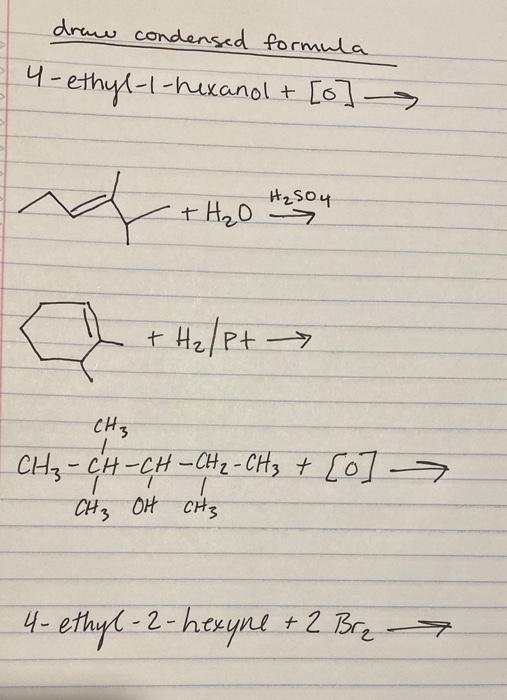 draw condensed formula
4-ethyl-1-hexanol + [O] →
+ H₂O H₂SO₄ →
+ H₂/Pt →
CH₃
CH₃-CH-CH-CH₂-CH₃ + [O] →
CH₃ OH CH₃
4-ethyl-2-hexyne + 2 Br₂ →